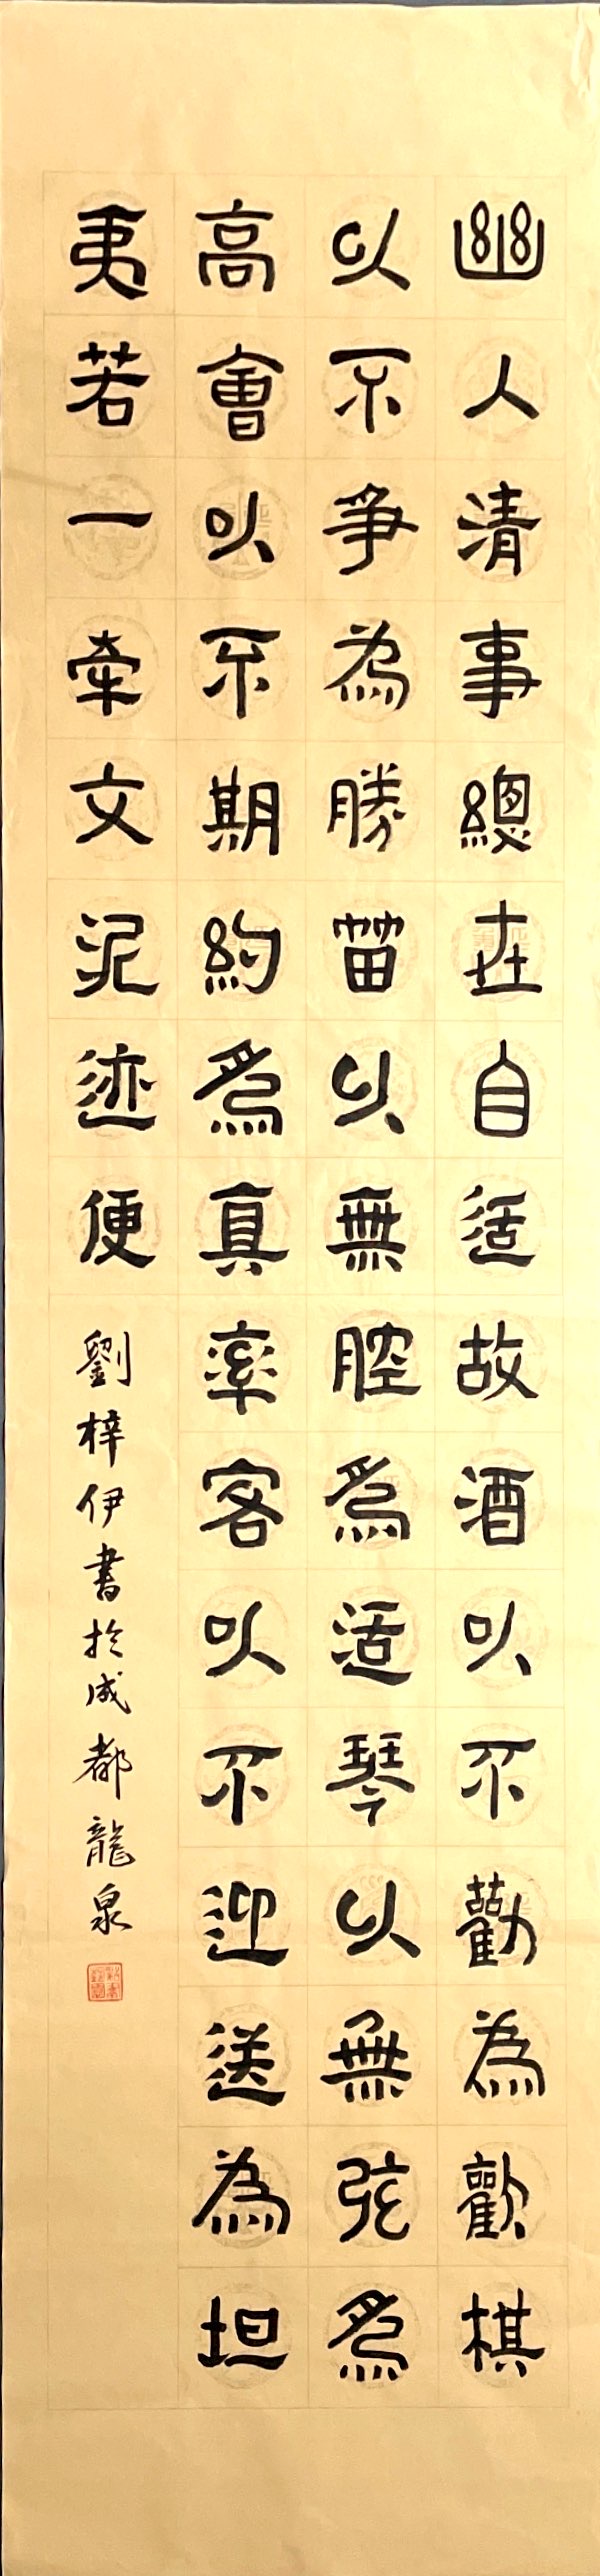 幽人清事總在自適故酒以不勸為歡棋
以不爭為勝笛以無腔為適琴以無弦為
高會以不期約為真率客以不迎送為坦
夷若一牽文泥迹便
劉梓伊書於成都龍泉